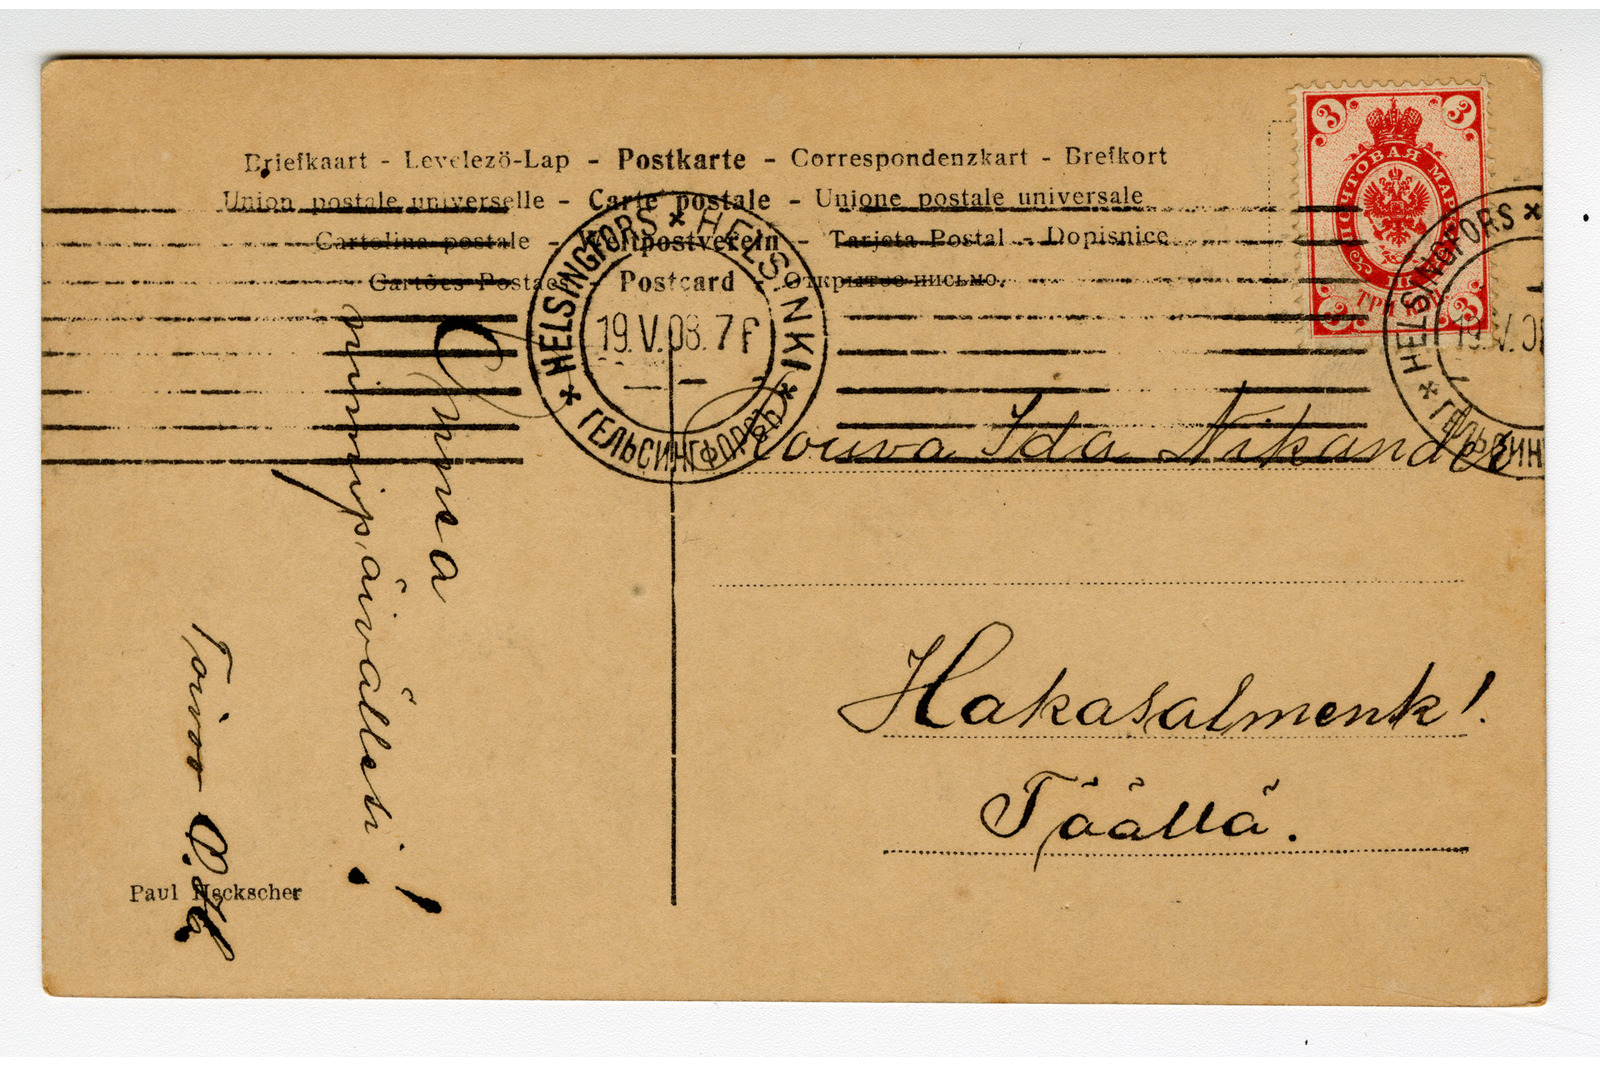 Briefkaart - Levelezö-Lap - Postkarte - Correspondenzkart - Brefkort
Union postale universelle - Carte postale - Unione postale universale
Cartolina postale - Weltpostverein - Tarjeta Postal - Dopisnice
Cartões Postaes - Postcard - Открытое письмо.
3 3
ПОЧТОВАЯ МАРКА
ТРИ КОП
3 3
HELSINGFORS * HELSINKI * ГЕЛЬСИНГФОРСЪ *
19.V.08.7
HELSINGFORS *
* ГЕЛЬСИНГ
19.V.0
Rouva Ida Nikander
Hakasalmenk!
Täällä.
Onnea
nimipäivällesi!
Toivo
Paul Heckscher